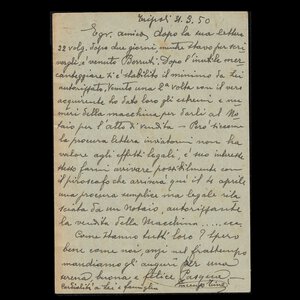 Tripoli 31.3.50
Egr. amico, dopo la sua lettera
22 volg. dopo due giorni, mentre stavo per scri
vergli, è venuto Borruti. Dopo l'inutile mer
canteggiare si è stabilito il minimo da Lei
autorizzato. Venuto una 2ª volta con il vero
acquirente ho dato loro gli estremi e nu
meri della macchina, per darli al No
taio per l'atto di vendita — Però siccom
la procura lettera inviatomi non ha
valore agli effetti legali, è suo interesse
stesso farmi arrivare possibilmente con
il piroscafo che arriva qui il 14 aprile
una procura semplice ma legale rila
sciata da un Notaio, autorizzante
la vendita della Macchina
Come stanno tutti loro? Spero
bene come noi, anzi nel frattempo
mandiamo gli auguri per una
serena, buona e felice Pasqua
Cordialità a Lei e famiglia